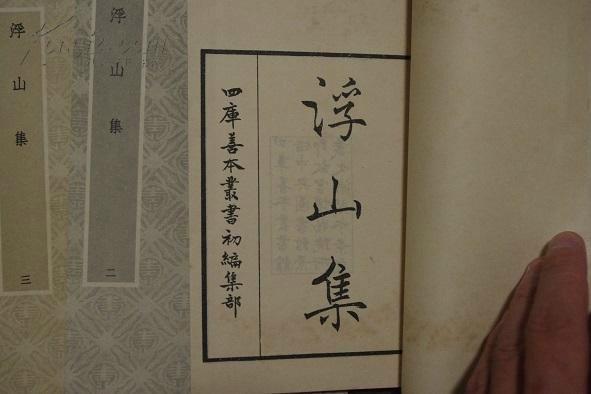 浮山集
四庫善本叢書初編集部
浮山集
二
浮山集
三